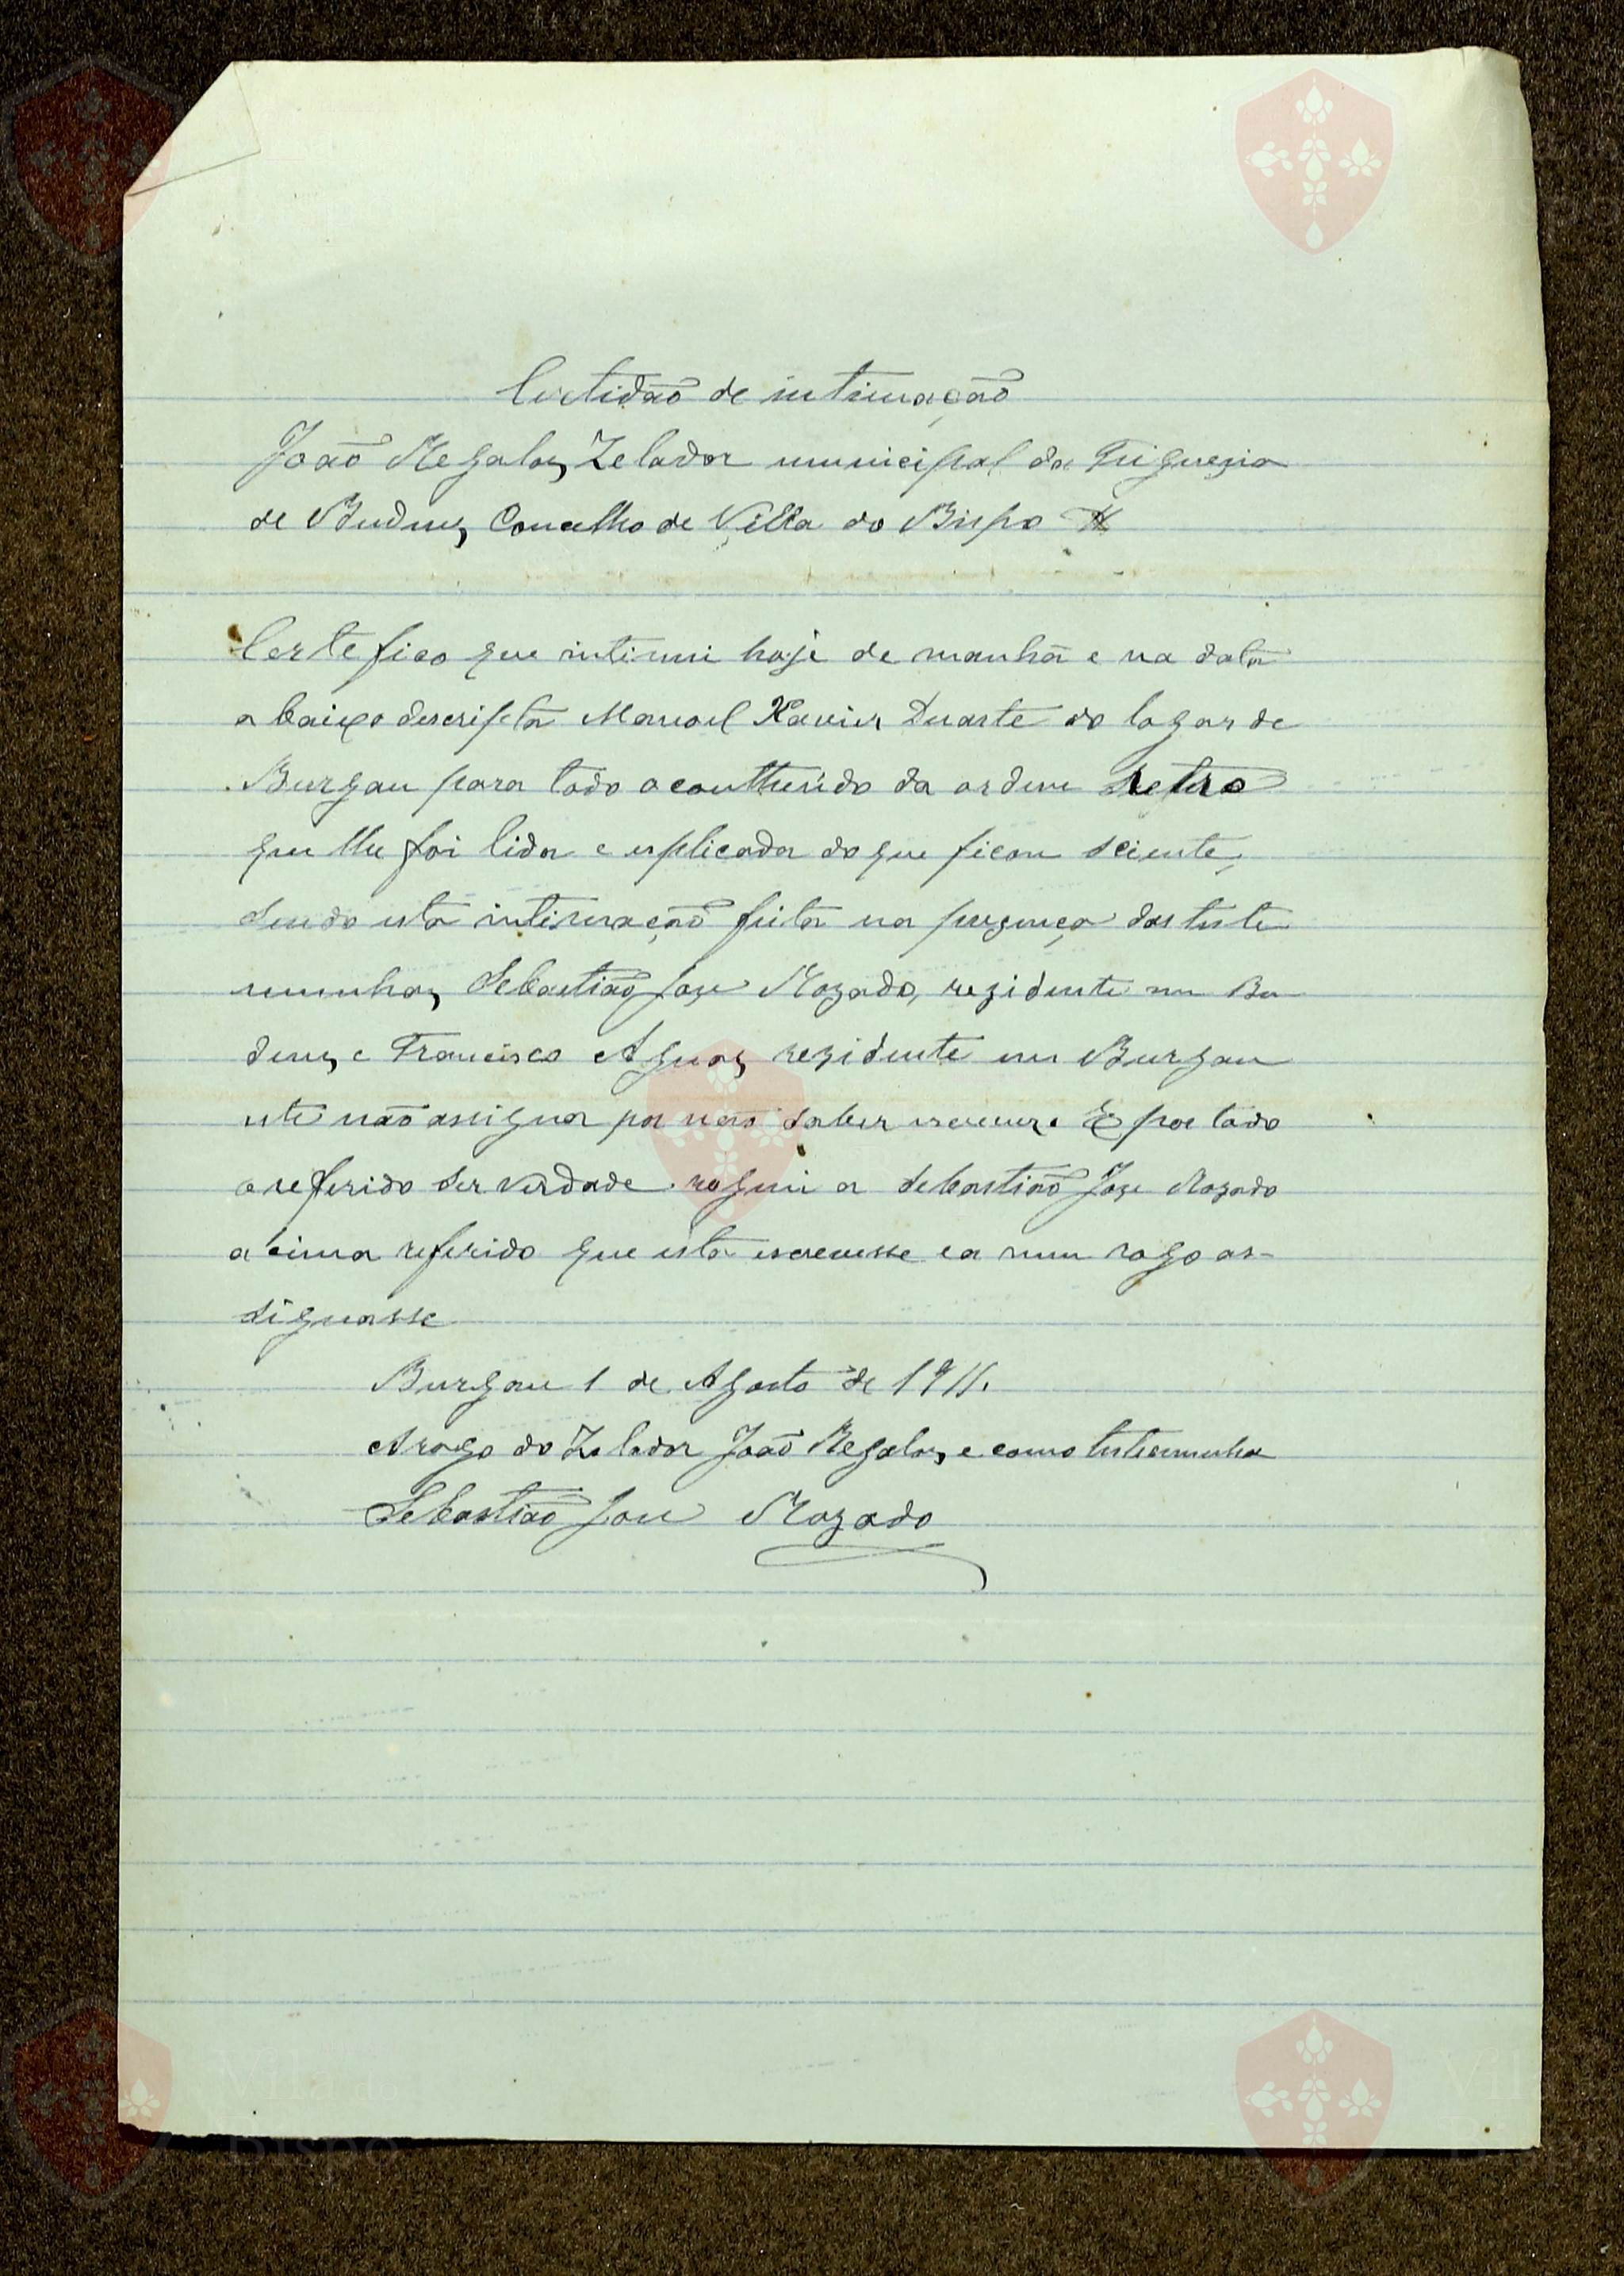 Certidão de intimação
João Regalas, Zelador municipal da Friguezia
de Budens, Concelho de Villa do Bispo
Certefico que intimei hoje de manhã e na data
abaixo descripta Manoel Xavier Duarte do logar de
Burgau para todo o conttheúdo da ordem retro
que lhe foi lida e esplicada do que ficou sciente,
sendo esta intimação feita na prezença das teste
munhas, Sebastião Joze Mozado, rezidente em Bu
dens, e Francisco Aguas, rezidente em Burgau
este não assigna por não saber escrever. E por todo
o referido ser verdade roguei a Sebastião Joze Mozado
acima referido que esta escrevesse e a meu rogo as-
signasse
Burgau 1 de Agosto de 1911.
A rogo do Zelador João Regalas, e como testemunha
Sebastião Joze Mozado
Vila do
Bispo